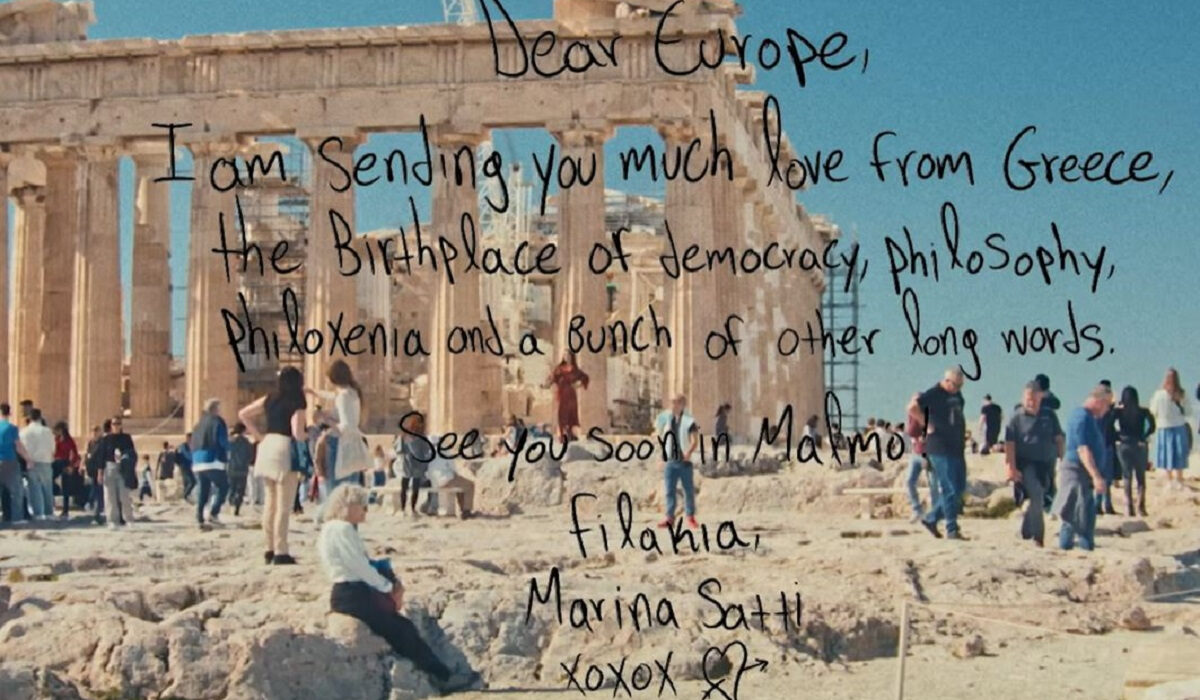 Dear Europe,
I am sending you much love from Greece,
the Birthplace of democracy, philosophy,
philoxenia and a Bunch of other long words.
See you soon in Malmo!
Filakia,
Marina Satti
xoxox